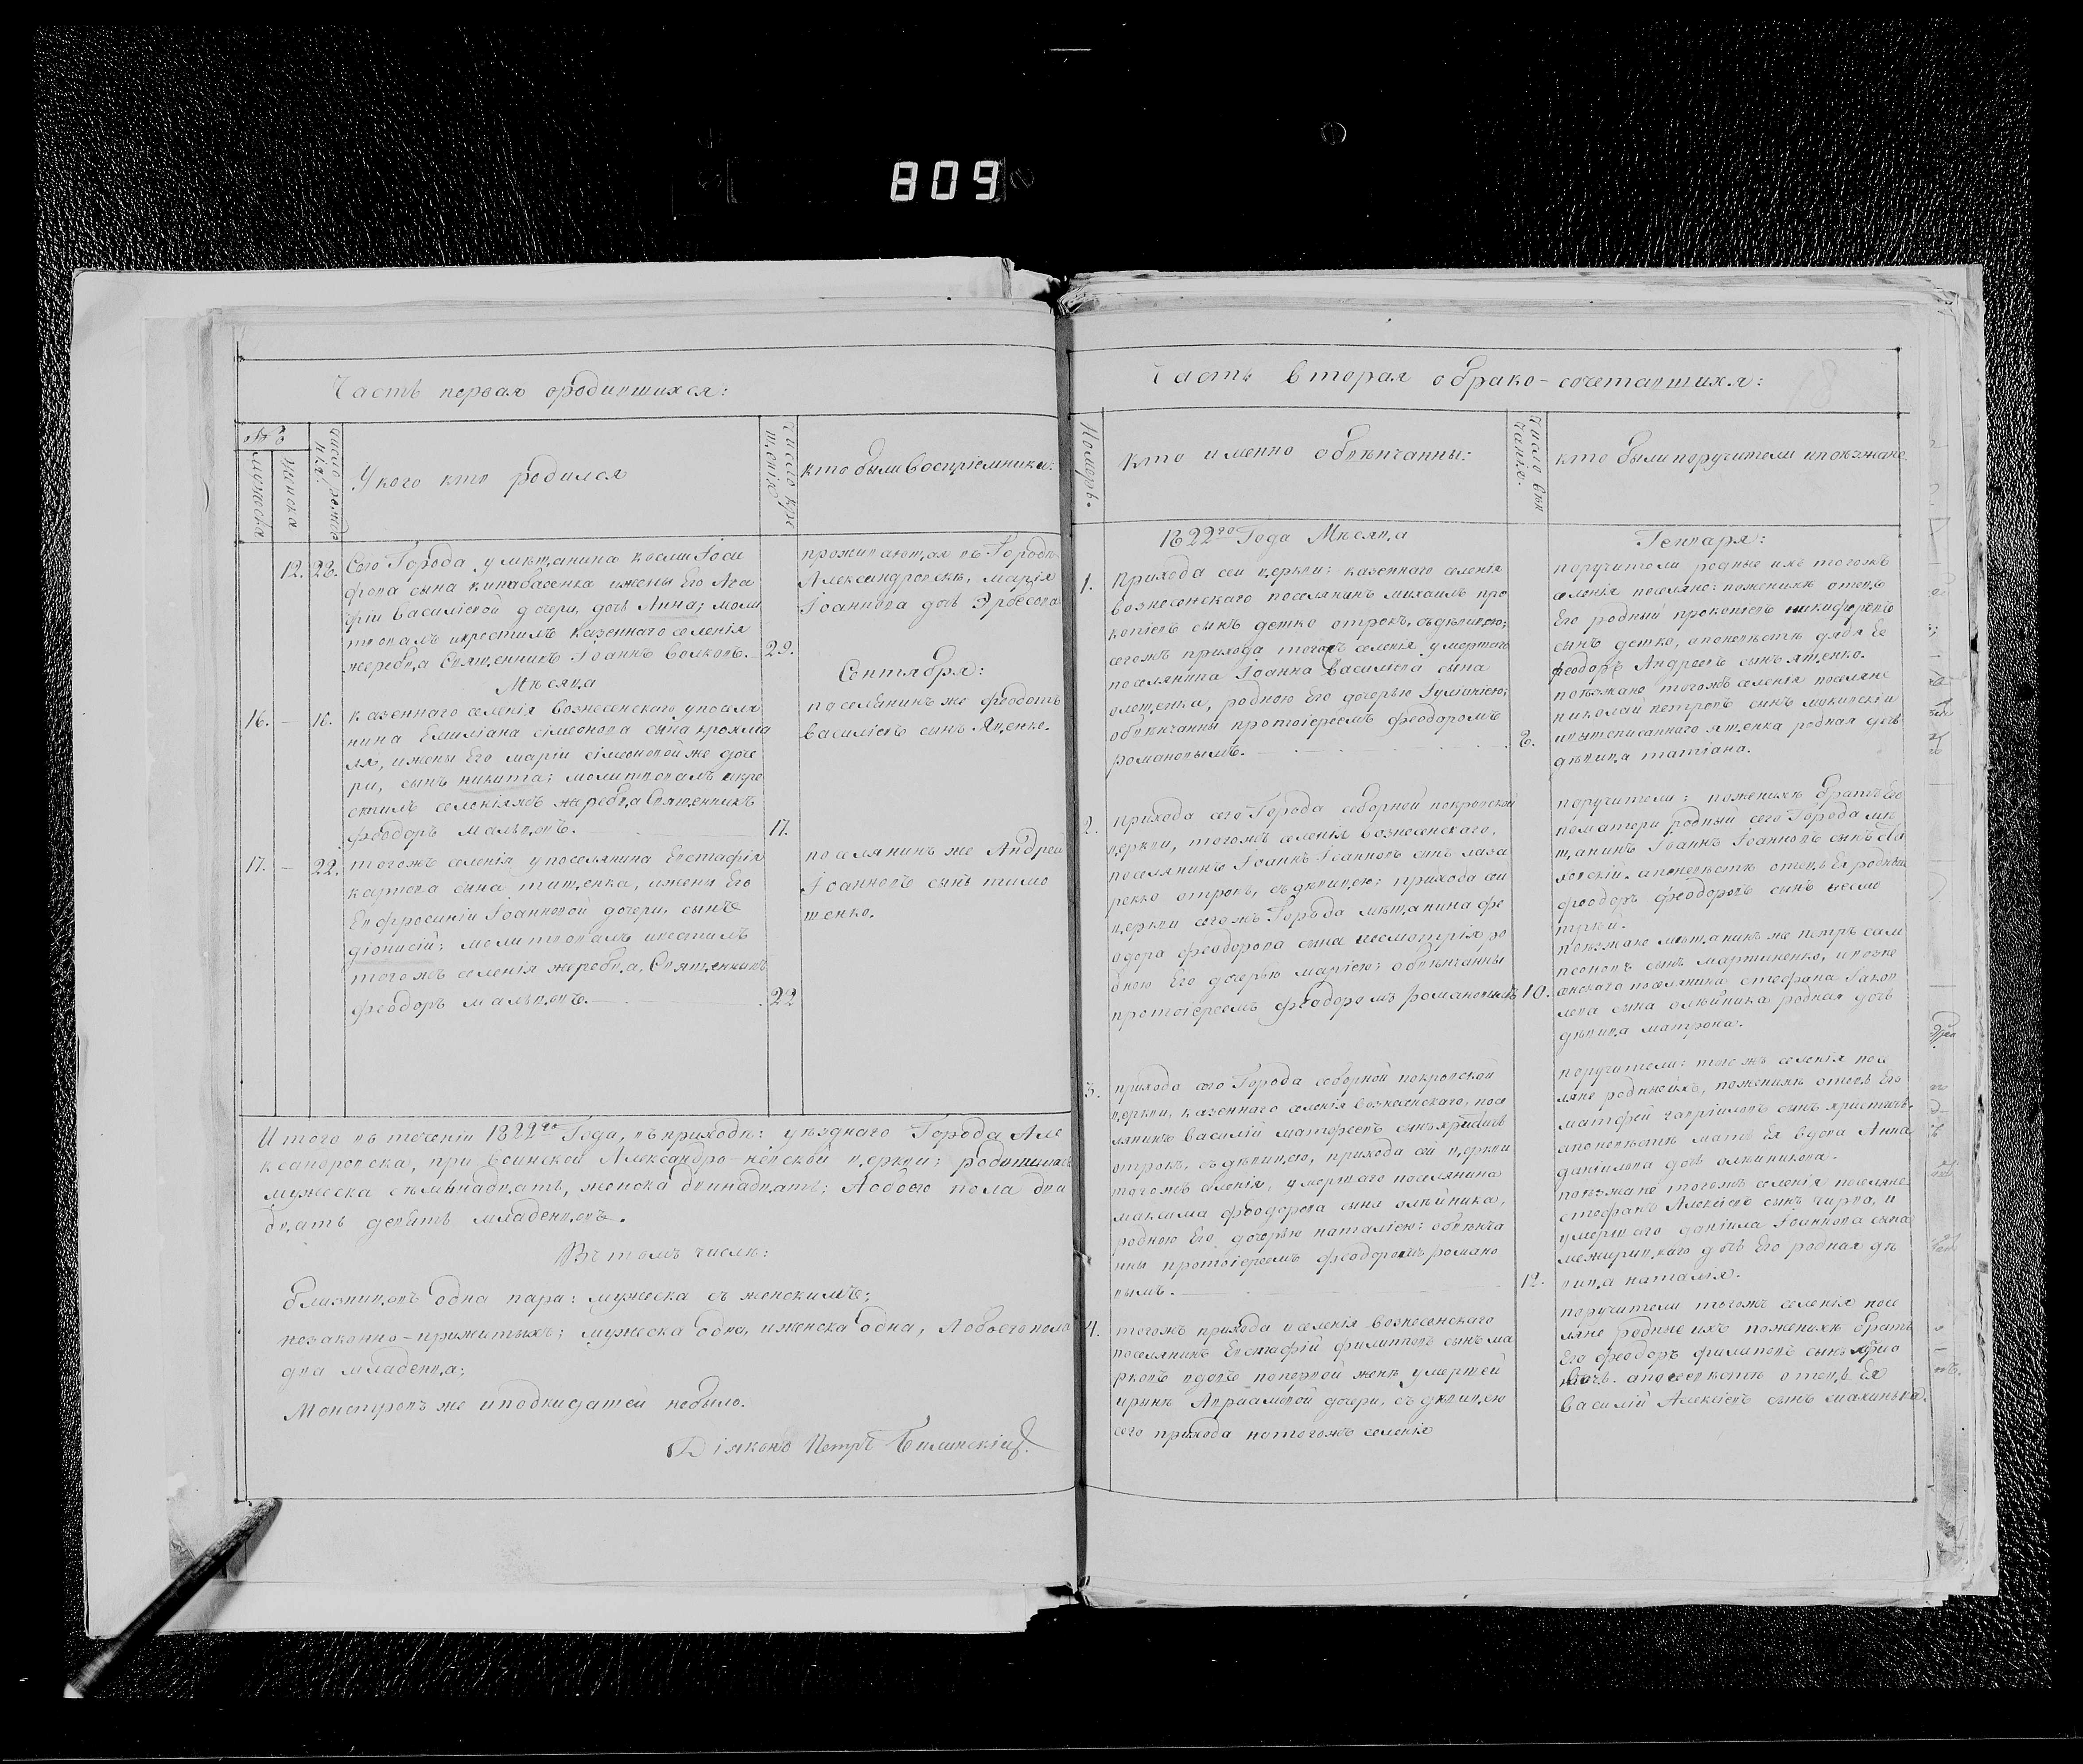 809
Часть первая ородившихся:
№
мужеска
женска
число рожде
нія.
У кого кто родился
число кре
щенія
кто были воспріемники:
12. 28. Сего Города у мѣщанина
сына жены Его Ага
фіи Василіевой дочери, дочь Анна; моли
твовалъ икрестилъ казеннаго селенія
жеребца Священникъ Іоаннъ Волковъ. 29.
проживающая въ Городѣ
Александровскѣ, марія
Іоаннова дочь
Мѣсяца
Сентября:
16. — 16. казеннаго селенія вознесенскаго упоселя
нина Емиліана сімеонова сына
ля, ижены Его маріи сімеоновой же доче
ри, сынъ никита; молитвовалъ икре
стилъ селенія жъ жеребца Священникъ
феодоръ мальцовъ. 17.
поселянинъ же феодотъ
василіевъ сынъ Яценко.
17. — 22. тогожъ селенія упоселянина Евстафія
карпова сына тищенка, ижены Его
Евфросиніи Іоанновой дочери, сынъ
діонисій; молитвовалъ икрестилъ
тогожъ селенія жеребца, Священникъ
феодоръ мальцовъ. 22
поселянинъ же Андрей
Іоанновъ сынъ тимо
шенко.
Итого въ теченіи 1822го Года, въ приходѣ: уѣзднаго Города Але
ксандровска, при воинской Александро-невской церкви; родилось
мужеска семьнадцать, женска двѣнадцать; Аобоего пола два
дцать девять младенцовъ.
Въ томъ числѣ:
близницовъ одна пара: мужеска съ женскимъ;
незаконно-прижитыхъ; мужеска одна, иженска одна, Аобоего пола
два младенца;
Монстровъ же иподкидышей небыло.
Діяконъ Петръ Билинскій.
Часть вторая обрако-сочетавшихся:
Номеръ.
кто именно обвѣнчанны:
число вѣн
чанія.
кто были поручители ипоезжане
1822го Года Мѣсяца
Генваря:
1. Прихода сей церкви: казеннаго селенія
вознесенскаго поселянинъ михаилъ про
копіевъ сынъ детко отрокъ, съдѣвицею;
сегожъ прихода тогожъ селенія умершаго
поселянина Іоанна Василіева сына
олещенка, родною Его дочерью Іуліаніею;
обвѣнчанны протоіереемъ феодоромъ
романовымъ. 8.
поручители родные ихъ тогожъ
селенія поселяне: поженихѣ отецъ
Его родный прокопіевъ никифоровъ
сынъ детко, апоневѣстѣ дядя Ея
феодоръ Андреевъ сынъ ященко.
поѣзжане тогожъ селенія поселяне
николай петровъ сынъ
ивышеписаннаго ященка родная дочь
дѣвица татіана.
2. прихода сего Города соборной покровской
церкви, тогожъ селенія вознесенскаго,
поселянинъ Іоаннъ Іоанновъ сынъ лаза
ренко отрокъ, съдѣвицею; прихода сей
церкви сегожъ Города мѣщанина фе
одора феодорова сына несмотрія ро
дною Его дочерью маріею; обвѣнчанны
протоіереемъ феодоромъ романовымъ 10.
поручители: поженихѣ братъ Его
поматери родный сего Города мѣ
щанинъ Іоаннъ Іоанновъ сынъ
апоневѣстѣ отецъ Ея родный
феодоръ феодоровъ сынъ несмо
трій.
поѣзжане мѣщанинъ же петръ сам
псоновъ сынъ мартиненко, ивозне
сенскаго поселянина стефана Іаков
лева сына олѣйника родная дочь
дѣвица матрона.
3. прихода сего Города соборной покровской
церкви, казеннаго селенія вознесенскаго, посе
лянинъ василій матфеевъ сынъ христичъ
отрокъ, съдѣвицею, прихода сей церкви
тогожъ селенія, умершаго поселянина
максима феодорова сына олѣйника,
родною Его дочерью наталіею: обвѣнча
нны протоіереемъ феодоромъ романо
вымъ. 12.
поручители: тогожъ селенія посе
ляне родныеихъ, поженихѣ отецъ Его
матфей гавріиловъ сынъ христичъ.
апоневѣстѣ мать Ея вдова Анна
даніилова дочь олѣйникова.
поѣзжане тогожъ селенія поселяне
стефанъ Алексіевъ сынъ чирва, и
умершаго даніила Іоаннова сына
межирицкаго дочь Его родная дѣ
вица наталія.
4. тогожъ прихода иселенія вознесенскаго
поселянинъ Евстафій филипповъ сынъ ма
рковъ вдовъ попервой женѣ умершей
иринѣ Авраамовой дочери, съдѣвицею
сего прихода итогожъ селенія
поручители тогожъ селенія посе
ляне родные ихъ поженихѣ братъ
Его феодоръ филиповъ сынъ
апоневѣстѣ отецъ Ея
василій Алексіевъ сынъ